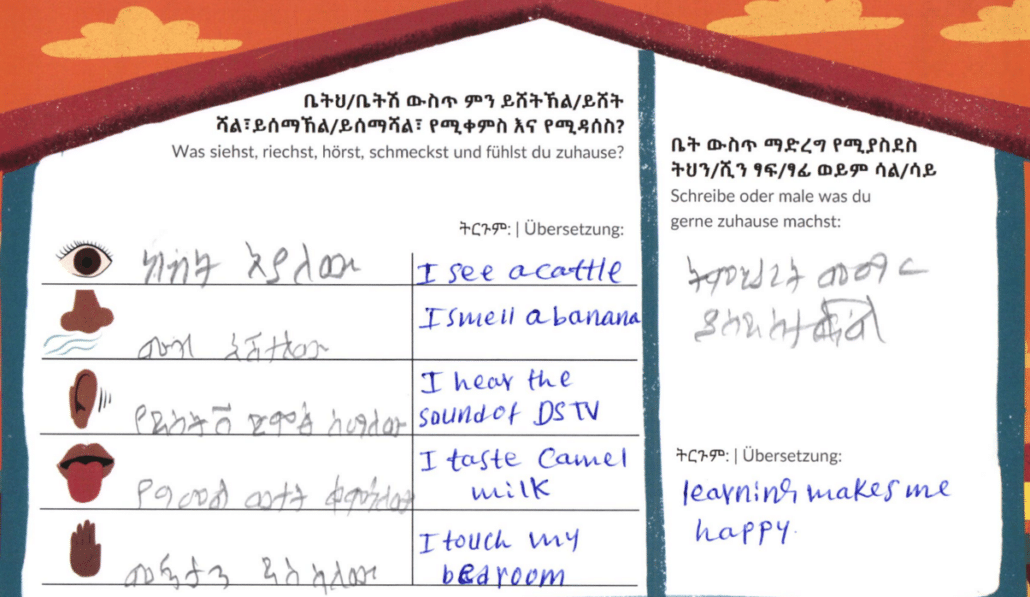 ቤትህ/ቤትሽ ውስጥ ምን ይሸትኸል/ይሸት
ሻል፣ይሰማኸል/ይሰማሻል፣ የሚቀምስ እና የሚዳሰስ?
Was siehst, riechst, hörst, schmeckst und fühlst du zuhause?
ትርጉም: | Übersetzung:
ከብት አያለው
I see a cattle
ሙዝ አሸተለው
I smell a banana
የዲስትሽ ድምፅ እሰማለው
I hear the
sound of DSTV
የግመል ወተት ቀምሻለው
I taste Camel
milk
I touch my
bedroom
ቤት ውስጥ ማድረግ የሚያስደስ
ትህን/ሺን ፃፍ/ፃፊ ወይም ሳል/ሳይ
Schreibe oder male was du
gerne zuhause machst:
ትምህርት መማር
ትርጉም: | Übersetzung:
learning makes me
happy.